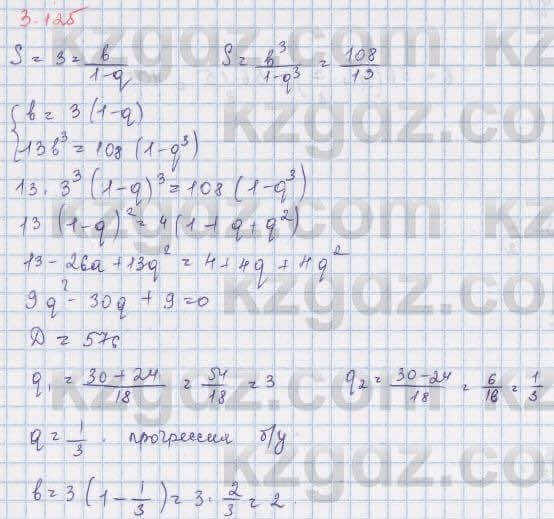 3.125
S = 3 = b/(1-q)    S = b³/(1-q³) = 108/13
{ b = 3(1-q)
13b³ = 108(1-q³)
13 · 3³(1-q)³ = 108(1-q³)
13(1-q)² = 4(1+q+q²)
13 - 26q + 13q² = 4 + 4q + 4q²
9q² - 30q + 9 = 0
D = 576
q₁ = (30+24)/18 = 54/18 = 3    q₂ = (30-24)/18 = 6/18 = 1/3
q = 1/3 . прогрессия б/у
b = 3(1 - 1/3) = 3 · 2/3 = 2.
kzgdz.com